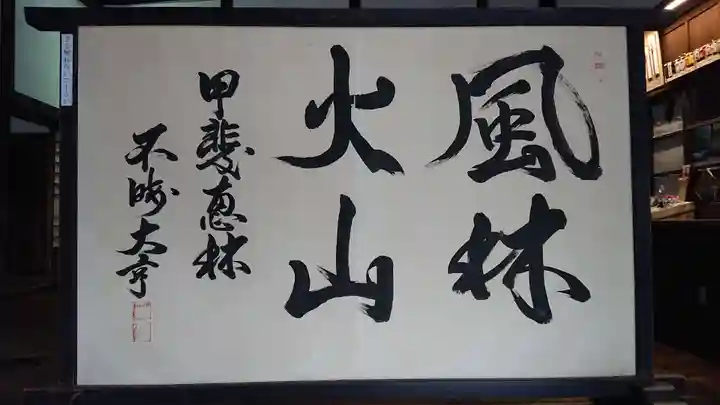 風林
火山
甲斐恵林
不時大亨